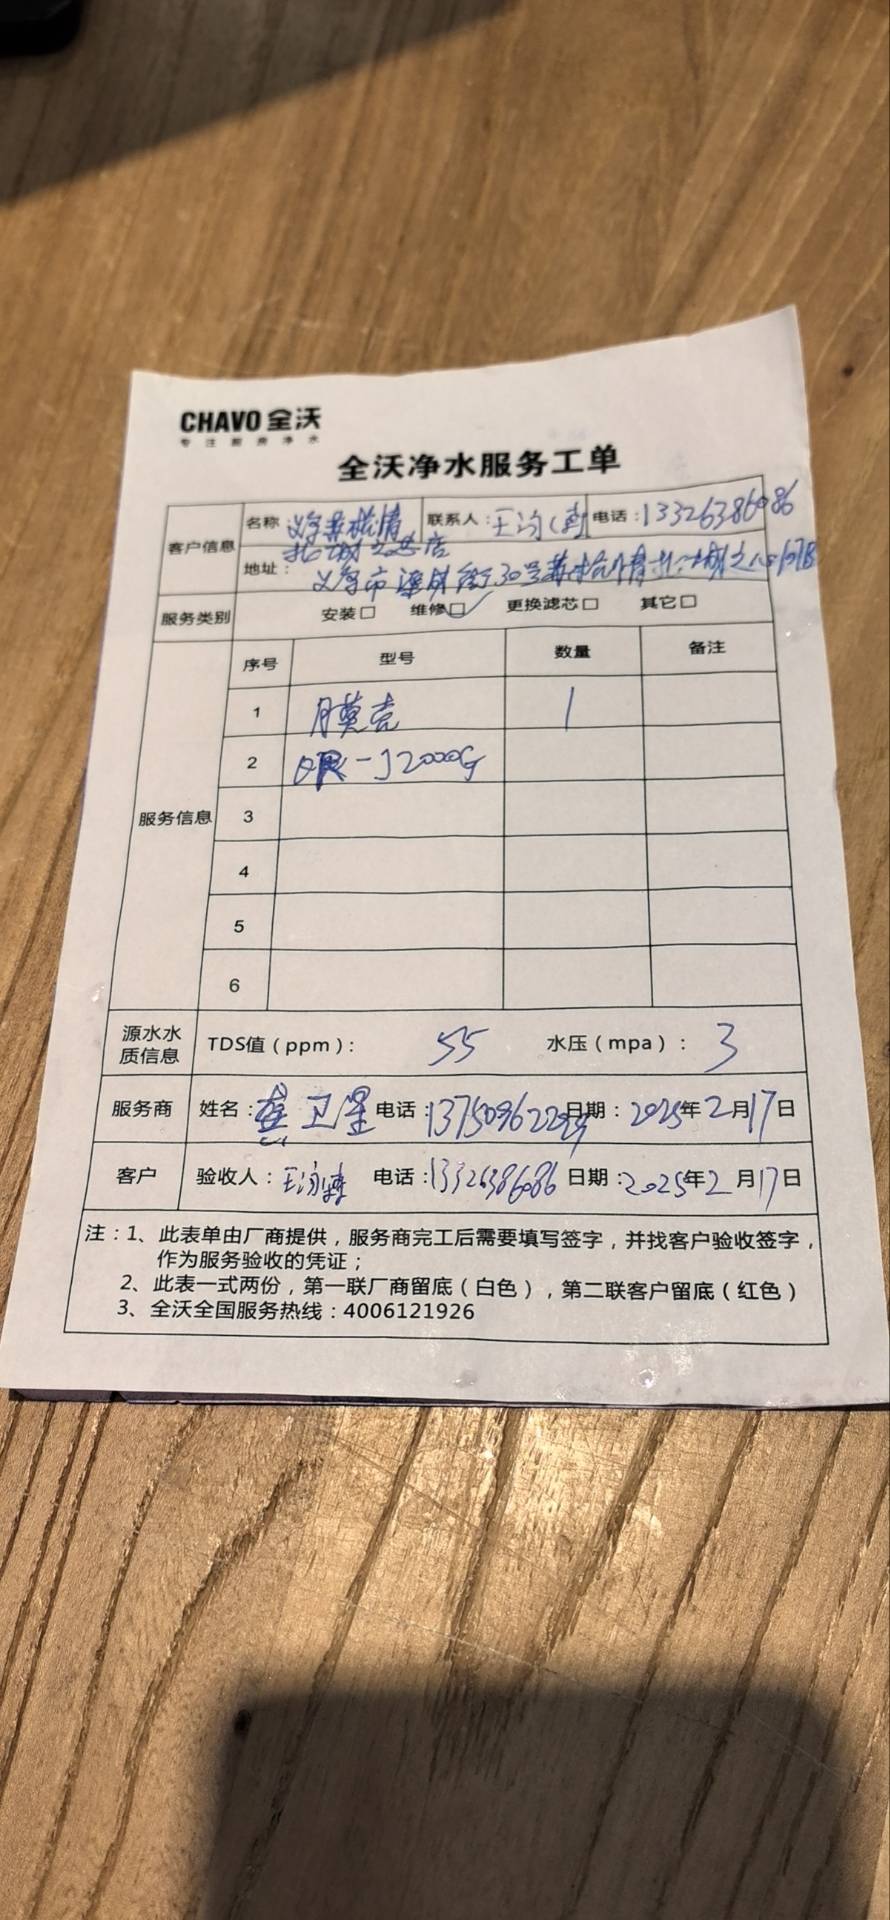 CHAVO 全沃
专注厨房净水
全沃净水服务工单
客户信息
名称
联系人：王 电话：13326386086
北城之心店
地址：义乌市 街30号
服务类别 安装□ 维修□✓ 更换滤芯□ 其它□
服务信息
序号 型号 数量 备注
1 膜壳 1
2 -J2000G
3
4
5
6
源水水质信息 TDS值（ppm）： 55 水压（mpa）： 3
服务商 姓名：龚卫星 电话： 日期：2025年2月17日
客户 验收人：王 电话：13326386086 日期：2025年2月17日
注：1、此表单由厂商提供，服务商完工后需要填写签字，并找客户验收签字，
作为服务验收的凭证；
2、此表一式两份，第一联厂商留底（白色），第二联客户留底（红色）
3、全沃全国服务热线：4006121926